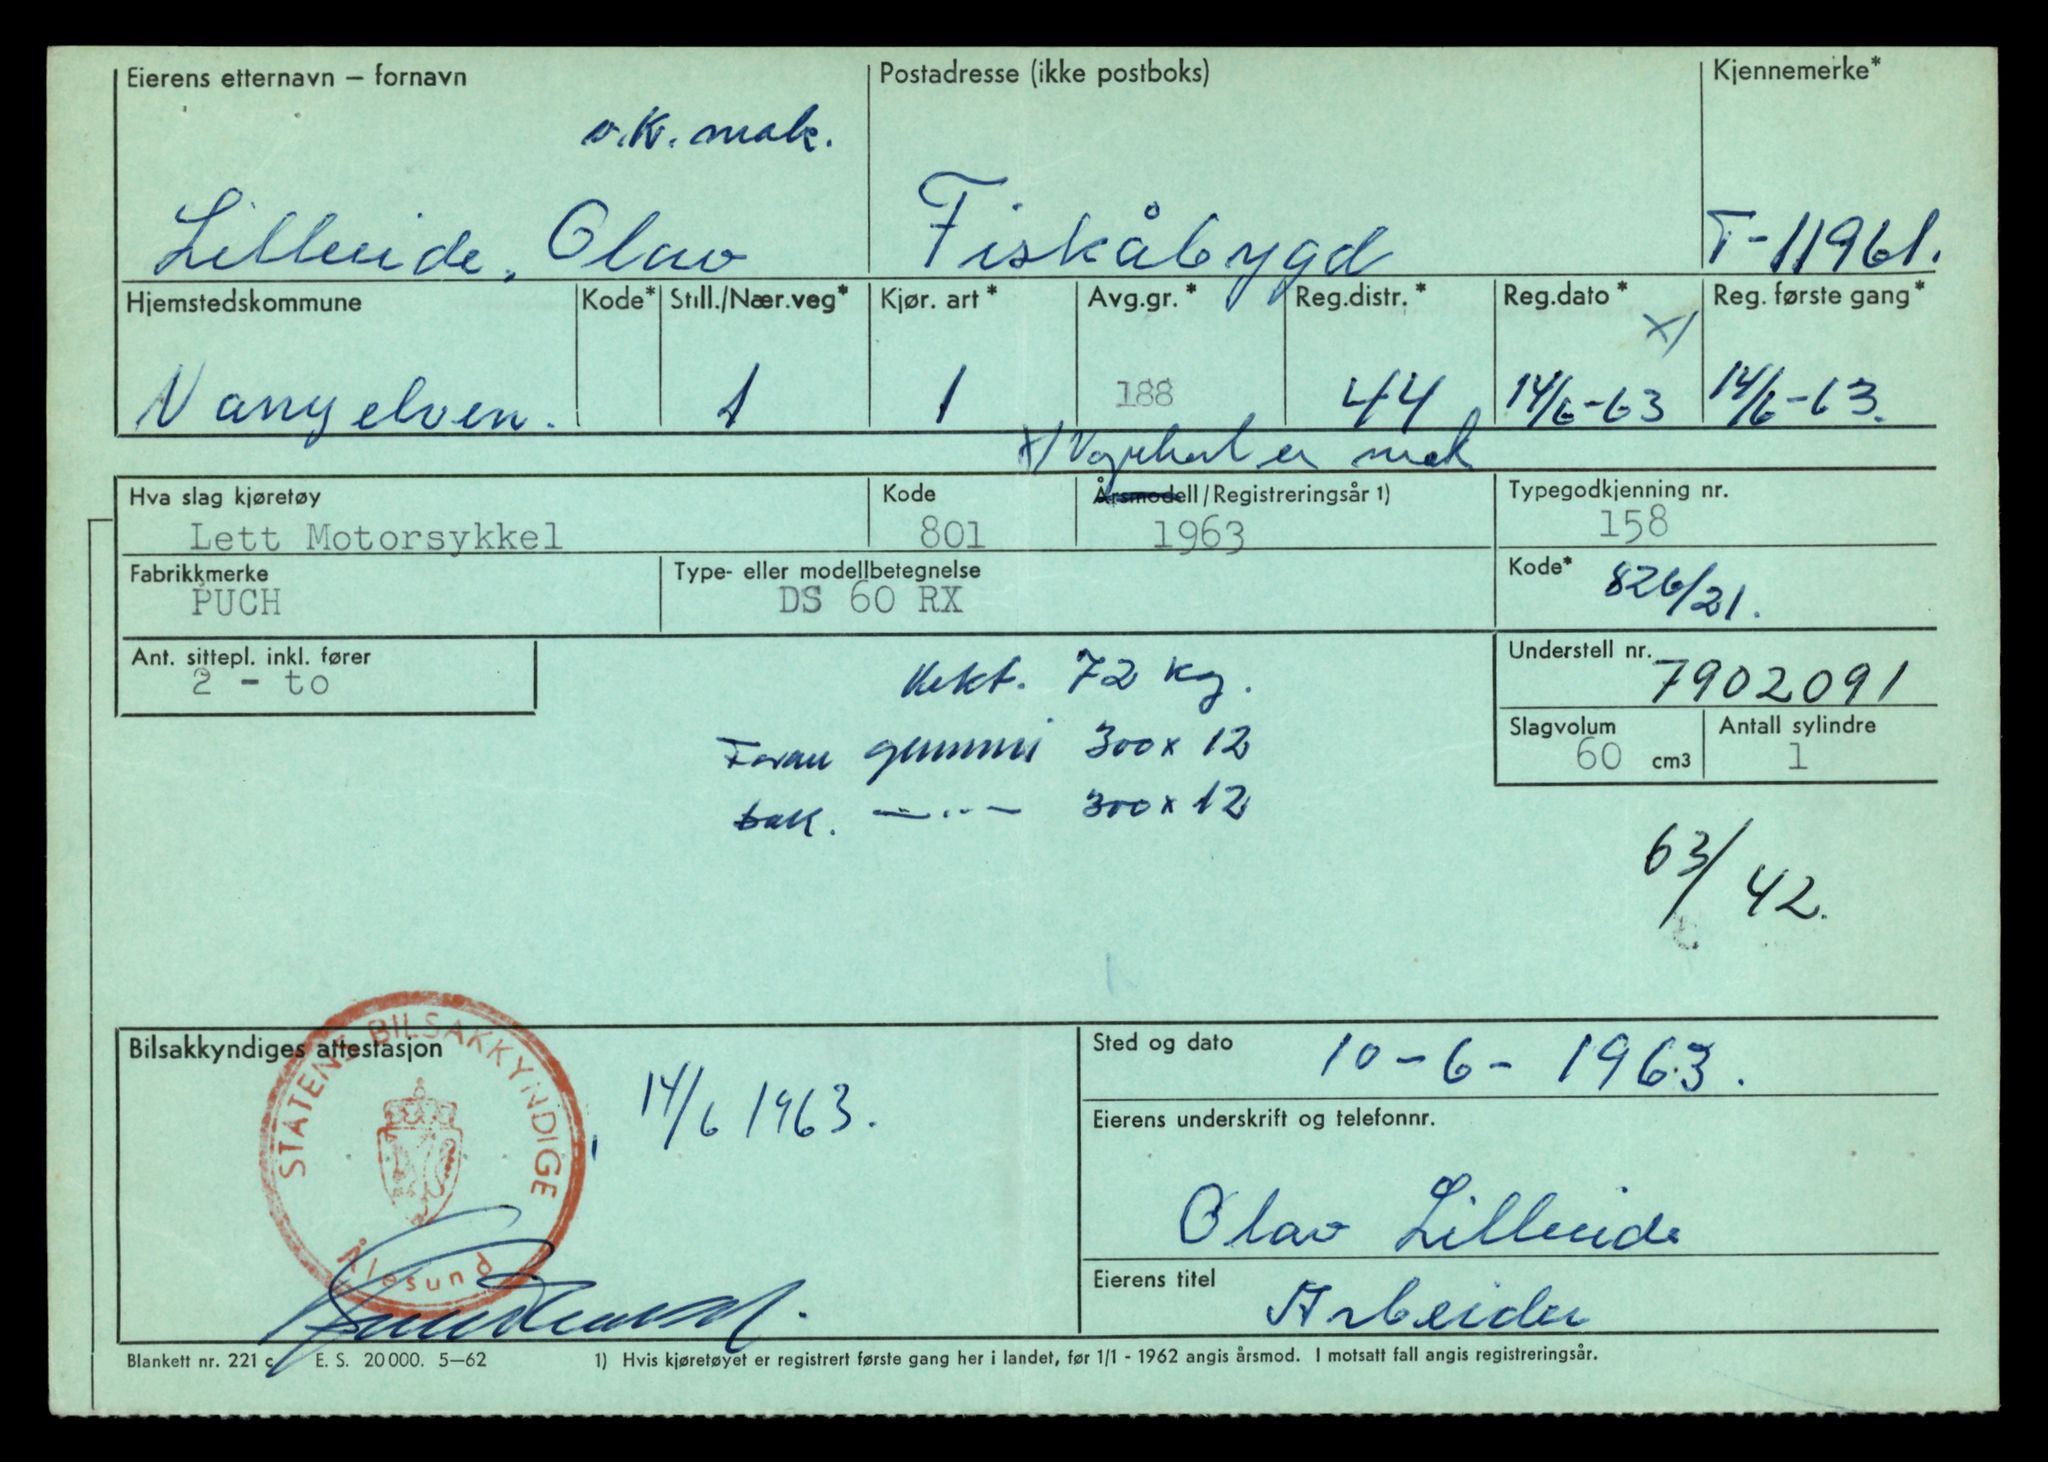 Eierens etternavn – fornavn
Postadresse (ikke postboks)
Kjennemerke*
v.k. mak.
Lilleeide, Olav
Fiskåbygd
T-11961.
Hjemstedskommune
Kode*
Still./Nær.veg*
Kjør. art*
Avg.gr.*
Reg.distr.*
Reg.dato*
Reg. første gang*
x/
Vanylven.
1
1
188
44
14/6-63
14/6-63.
x/ Vognkort er mak
Hva slag kjøretøy
Kode
Årsmodell/Registreringsår 1)
Typegodkjenning nr.
Lett Motorsykkel
801
1963
158
Fabrikkmerke
Type- eller modellbetegnelse
Kode*
PUCH
DS 60 RX
826/21.
Ant. sittepl. inkl. fører
Understell nr.
2 - to
7902091
Vekt. 72 kg.
Slagvolum
Antall sylindre
60 cm3
1
Foran gummi 300x12
bak. —··— 300x12
63/42.
Bilsakkyndiges attestasjon
STATENS BILSAKKYNDIGE
Ålesund
14/6 1963.
Sted og dato
10-6-1963.
Eierens underskrift og telefonnr.
Olav Lilleeide
Eierens titel
Arbeider
Blankett nr. 221 c
E. S. 20000. 5—62
1) Hvis kjøretøyet er registrert første gang her i landet, før 1/1 - 1962 angis årsmod. I motsatt fall angis registreringsår.